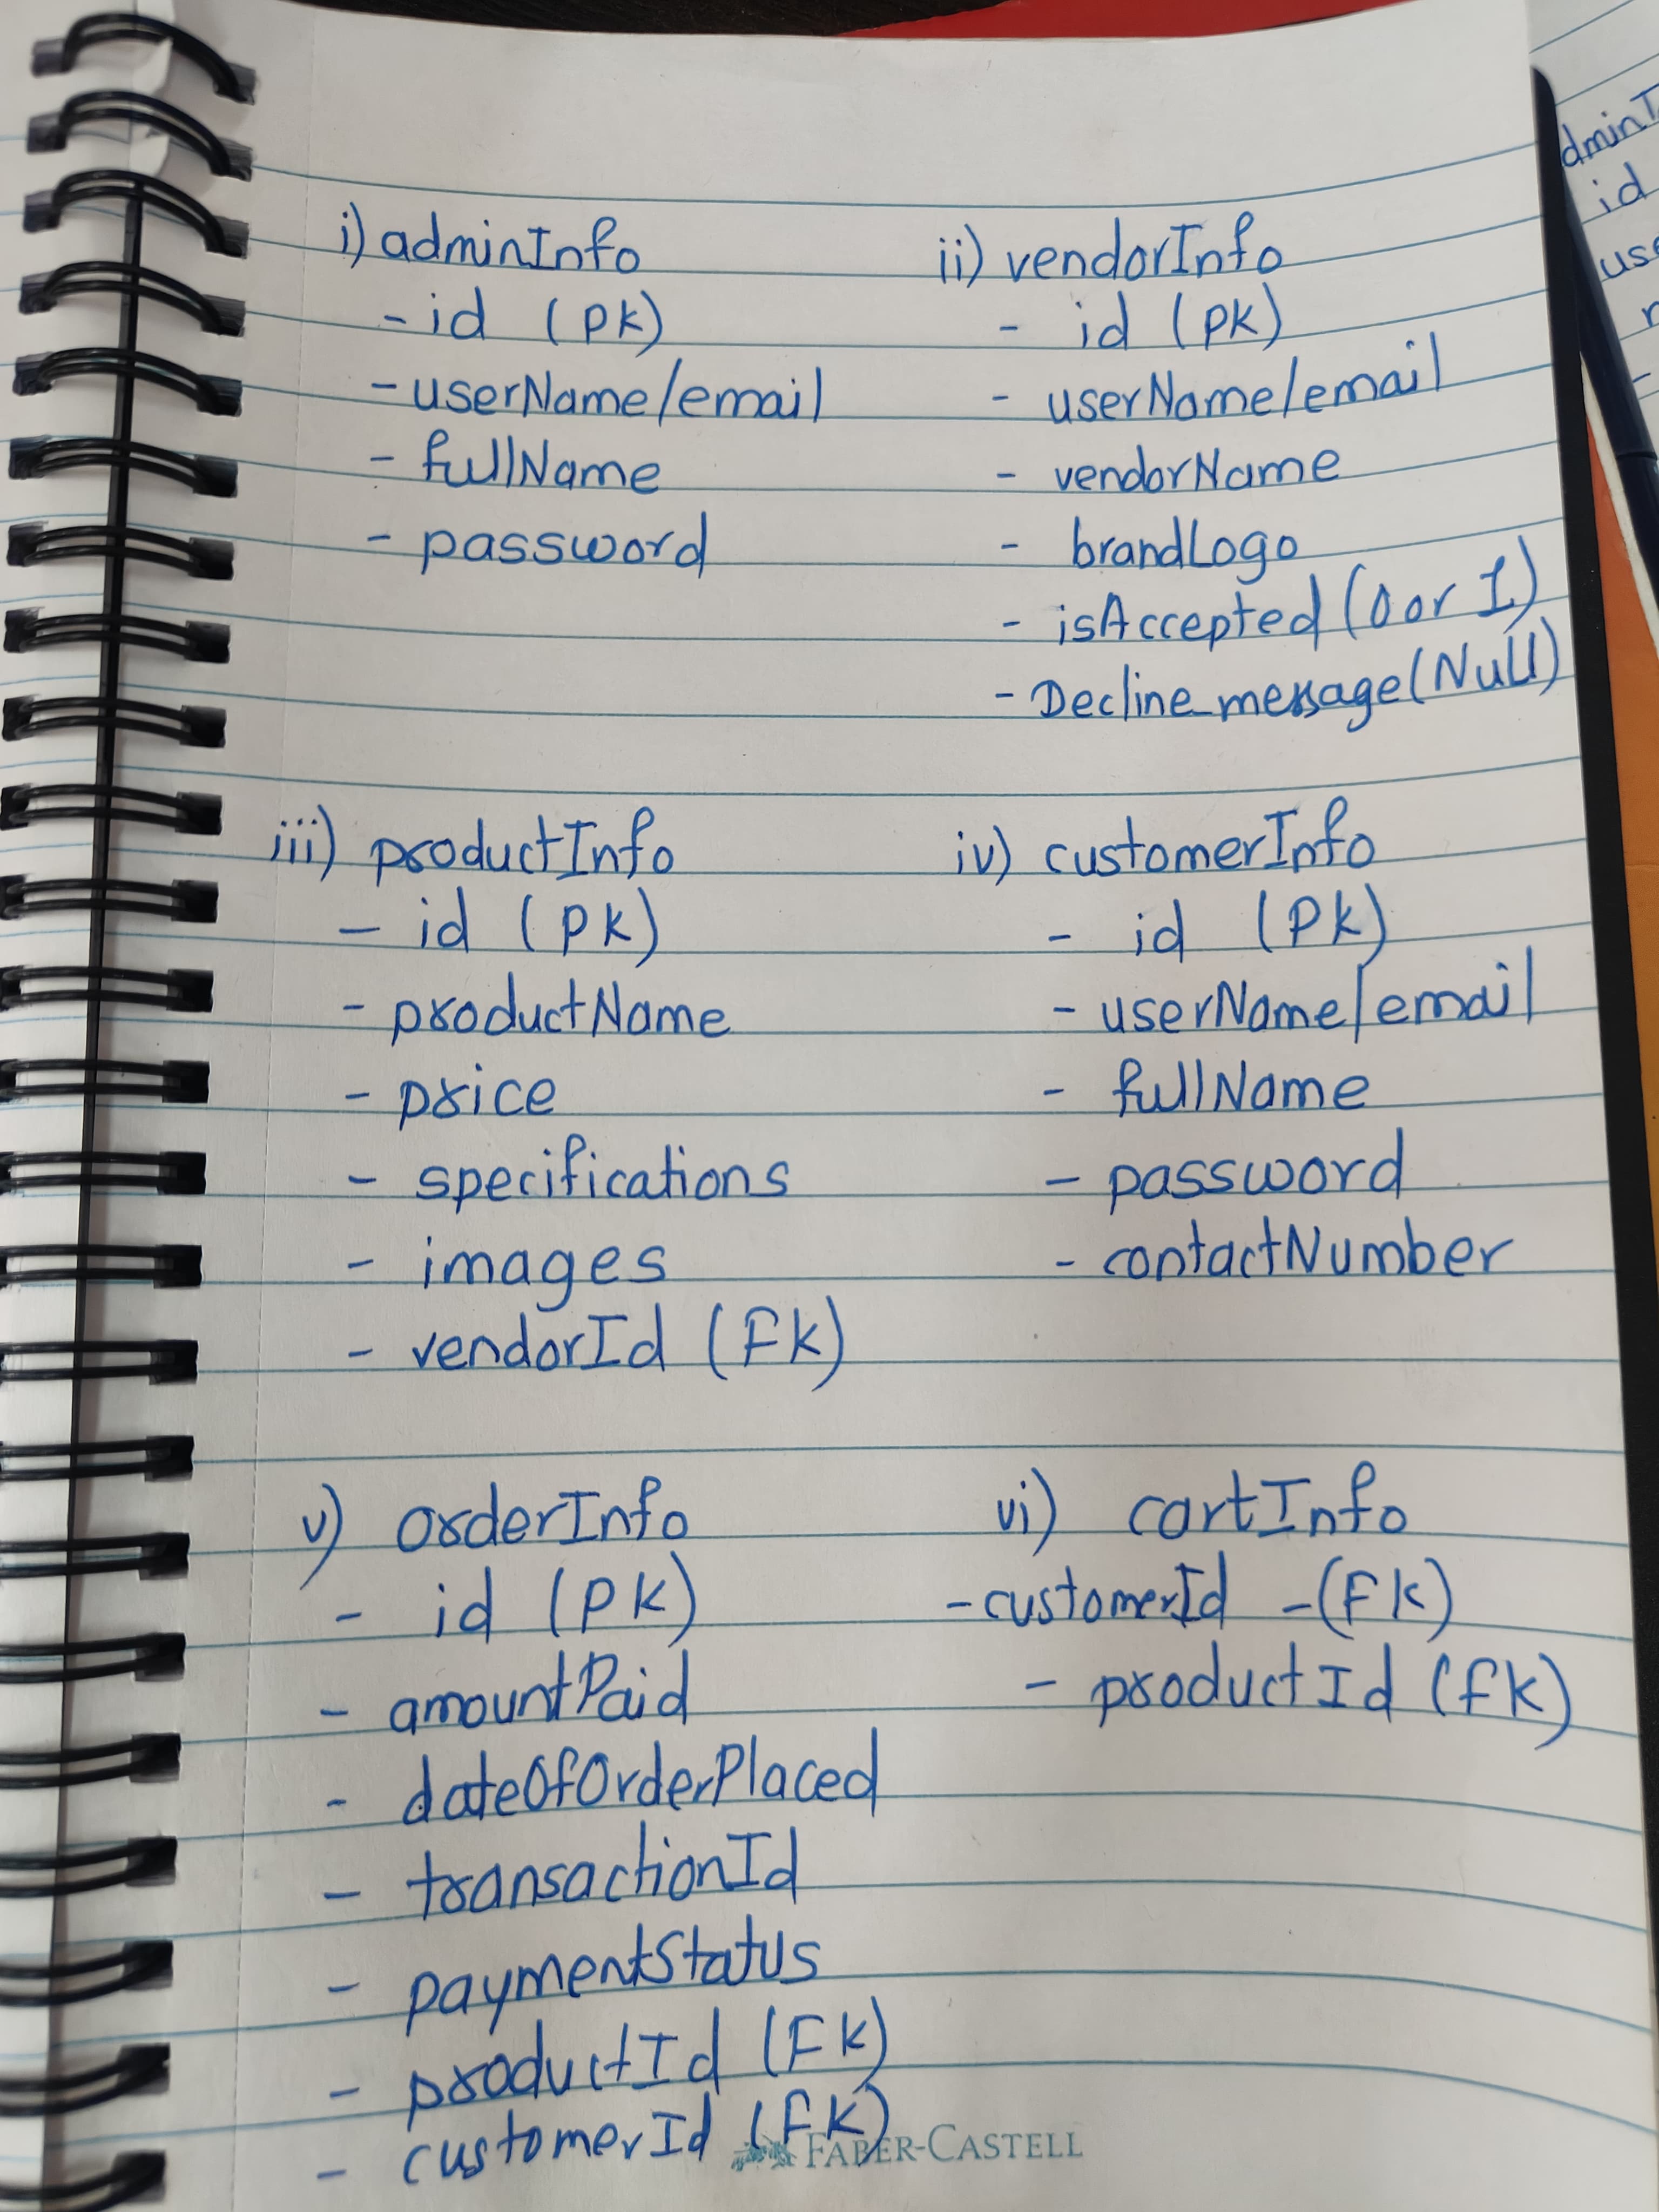 i) adminInfo
- id (PK)
- userName/email
- fullName
- password
ii) vendorInfo
- id (PK)
- userName/email
- vendorName
- brandLogo
- isAccepted (0 or 1)
- Decline_message (Null)
iii) productInfo
- id (PK)
- productName
- price
- specifications
- images
- vendorId (FK)
iv) customerInfo
- id (PK)
- userName/email
- fullName
- password
- contactNumber
v) orderInfo
- id (PK)
- amountPaid
- dateOfOrderPlaced
- transactionId
- paymentStatus
- productId (FK)
- customerId (FK)
vi) cartInfo
- customerId - (FK)
- productId (FK)
FABER-CASTELL
id